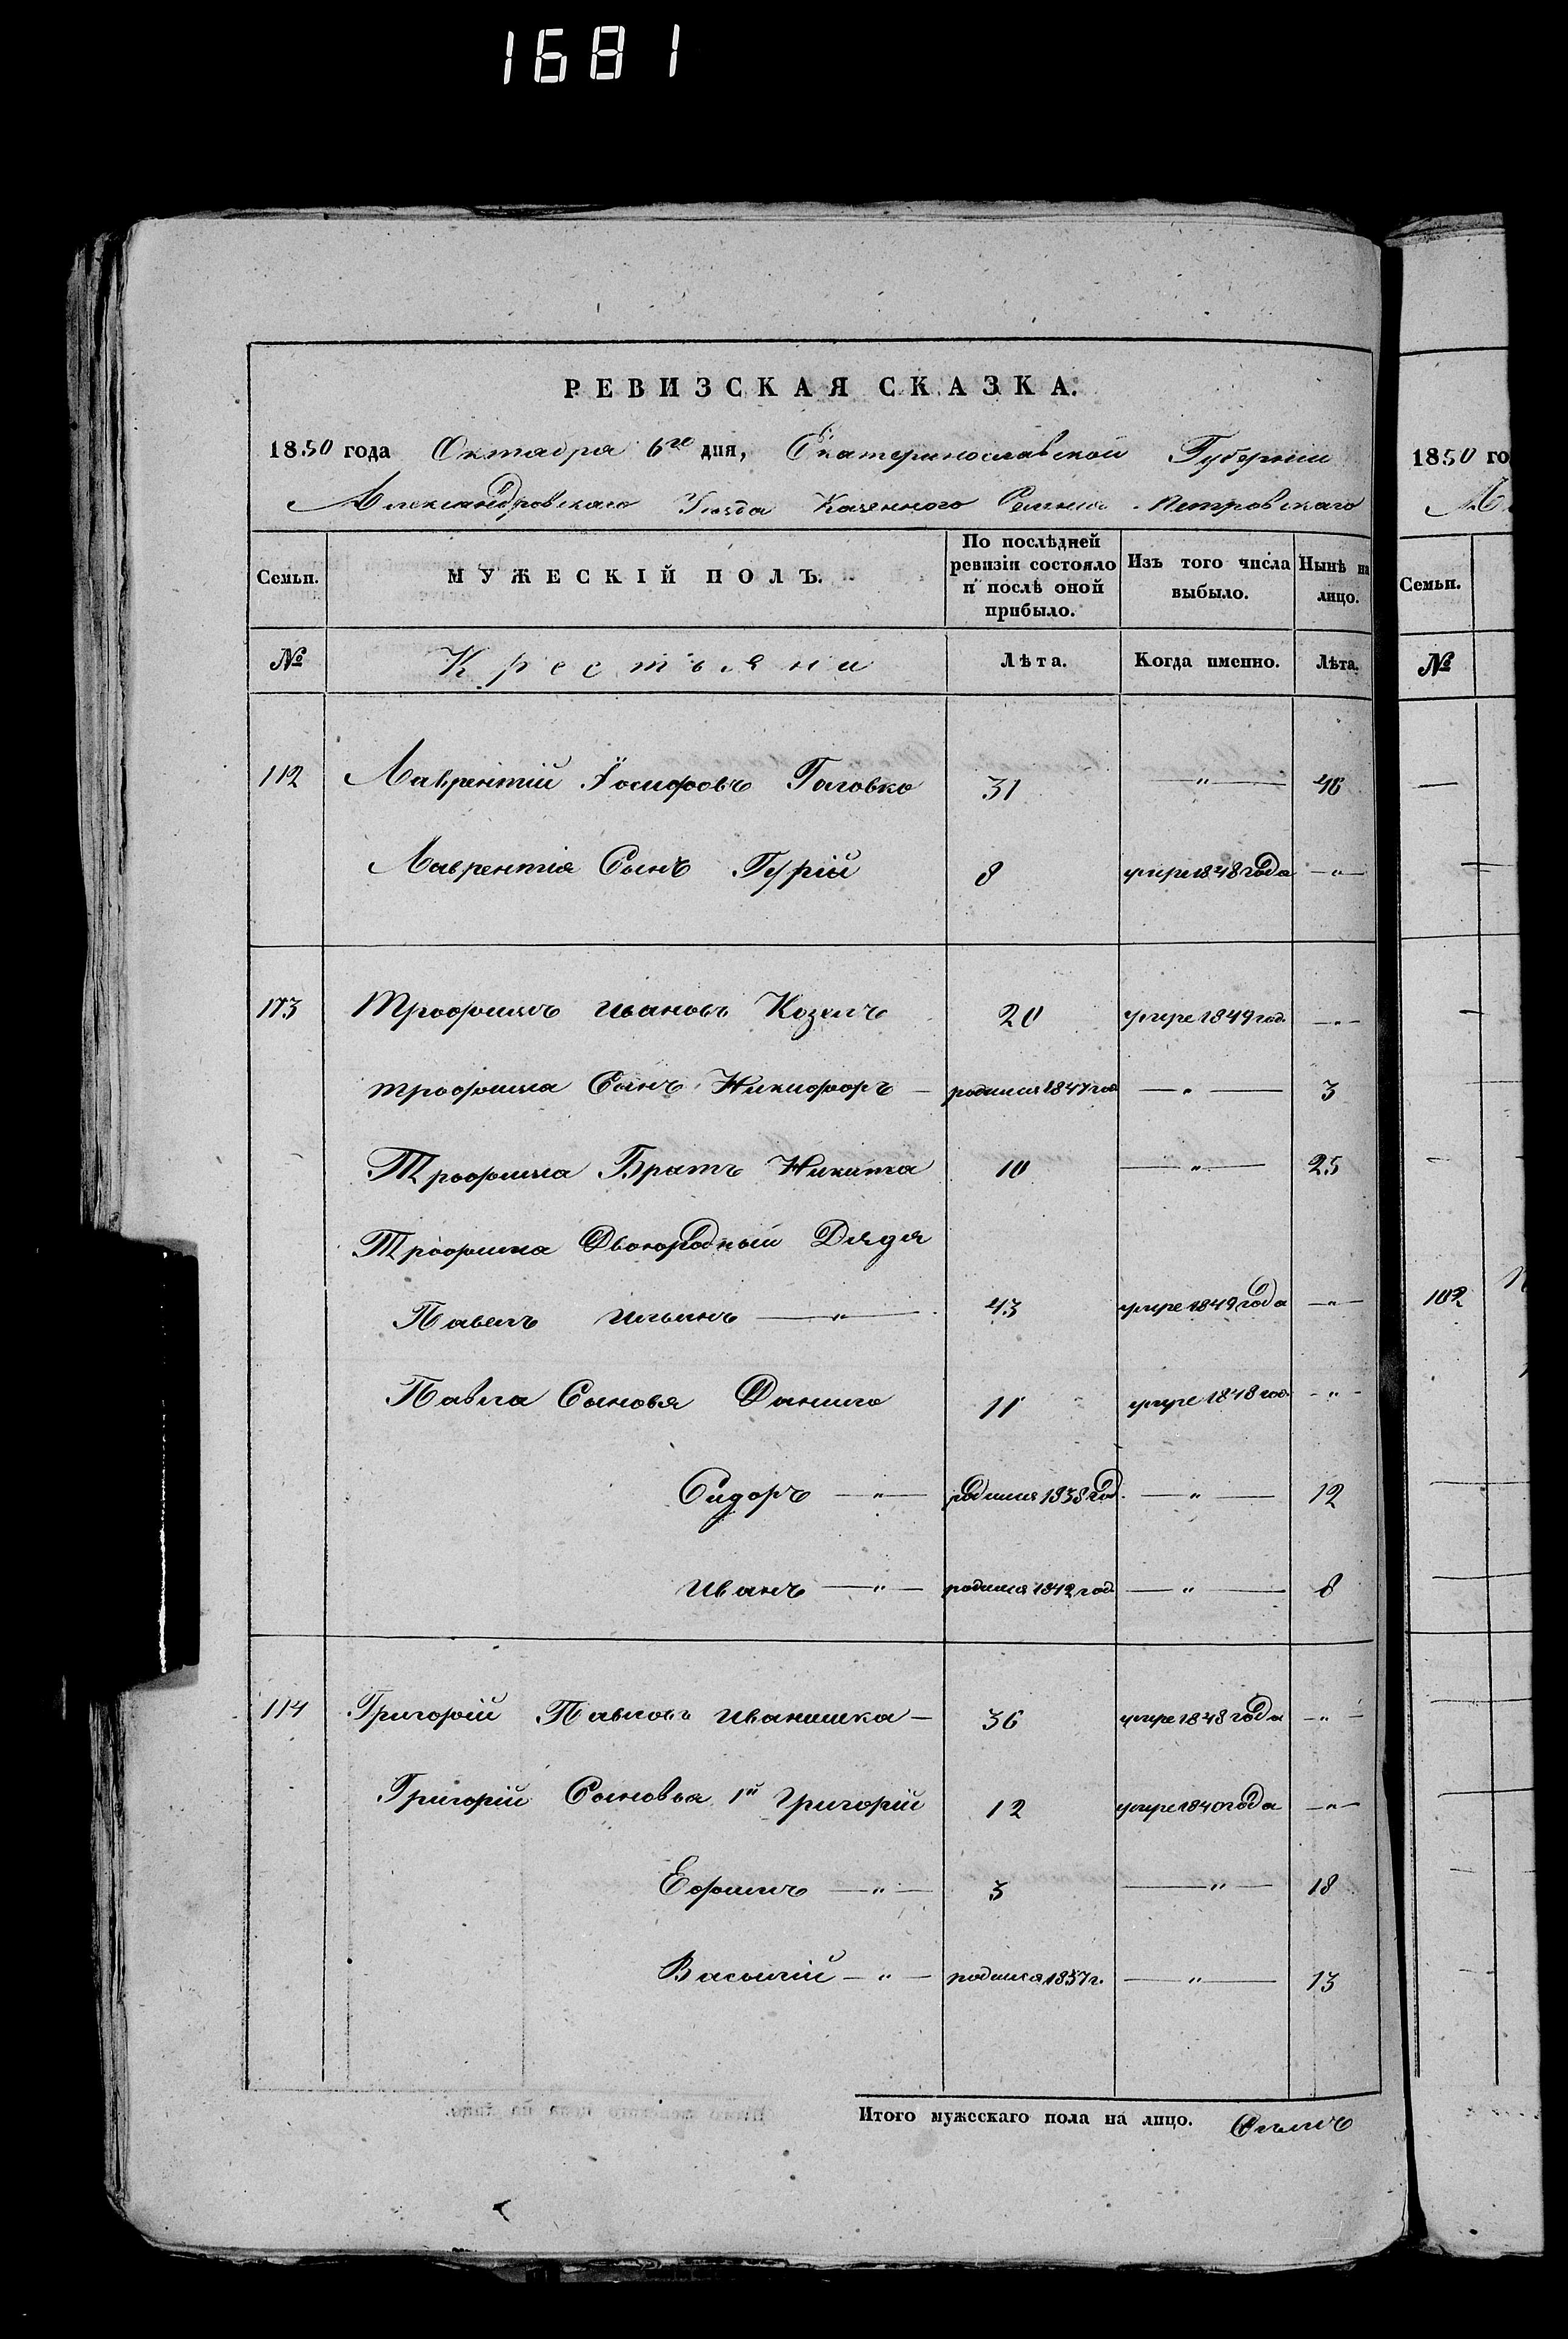 1681
РЕВИЗСКАЯ СКАЗКА.
1850 года Октября 6го дня, Екатеринославской Губерніи
Александровского Уезда Казенного Селенія Петровскаго
Семьи. МУЖЕСКІЙ ПОЛЪ. По послѣдней ревизіи состояло и послѣ оной прибыло. Изъ того числа выбыло. Нынѣ на лицо.
№ Крестьяни Лѣта. Когда именно. Лѣта.
112 Лаврентій Іосифовъ Головко 31 —"— 46
Лаврентія Сынъ Гурій 8 умре 1848 года —"—
113 Трофимъ Ивановъ Козелъ 20 умре 1849 год. —"—
трофима Сынъ Никифоръ — родился 1847 год —"— 3
Трофима Братъ Никита 10 —"— 25
Трофима Двоюродный Дядя
Павелъ Ильинъ —"— 43 умре 1849 года —"—
Павла Сыновья Данило 11 умре 1848 год. —"—
Сидоръ —"— родился 1838 год. —"— 12
Иванъ —"— родился 1842 год. —"— 8
114 Григорій Павловъ Иванишка — 36 умре 1848 года —"—
Григорій Сыновья 1й Григорій 12 умре 1840 года —"—
Ефимъ —"— 3 —"— 18
Василій —"— родился 1837 г. —"— 13
Итого мужескаго пола на лицо.
1850 го
Семьи.
№
109